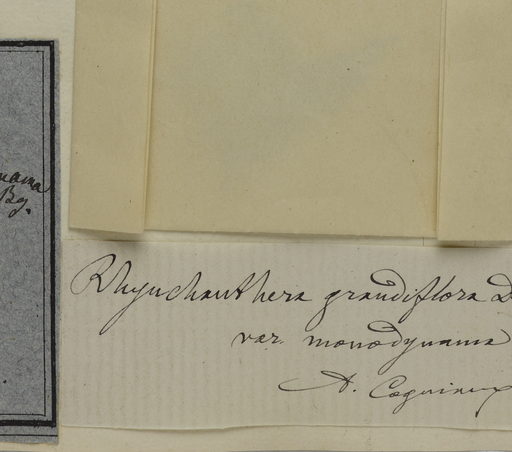 nama
Bg.
Rhynchanthera grandiflora D
var. monodynama
A. Cogniaux